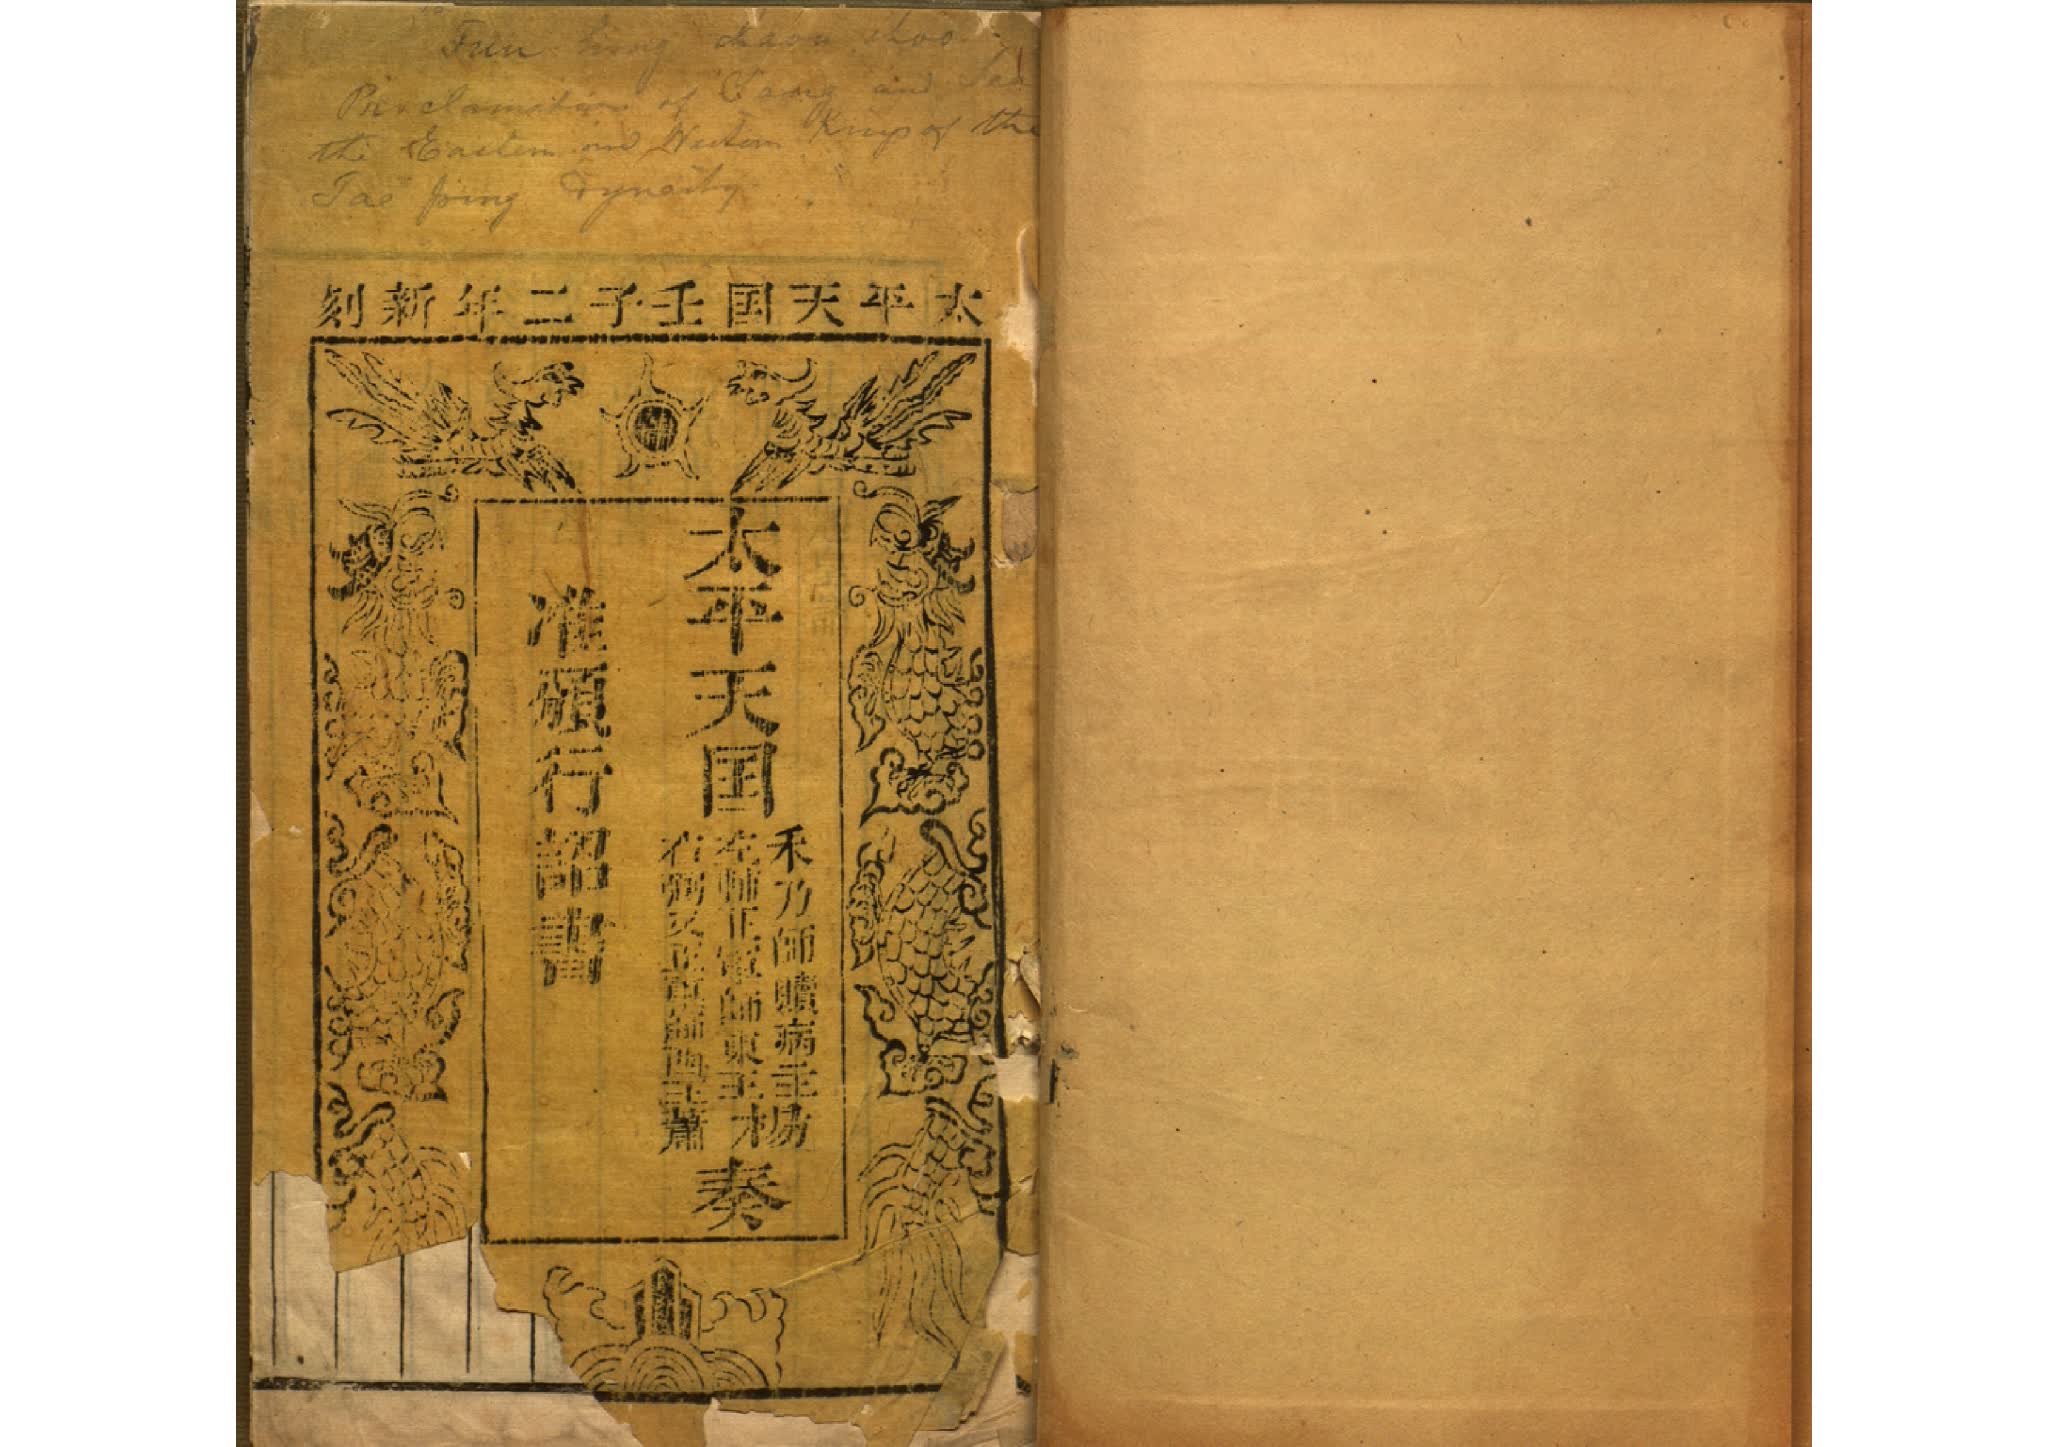 Fun hing chaou shoo
Proclamation of Yang and
the Eastern and Western Kings of the
Tae ping Dynasty
太平天国壬子二年新刻
太平天国
禾乃師贖病主
左輔正軍師東王楊
右弼又正軍師西王蕭
奏
准頒行詔書